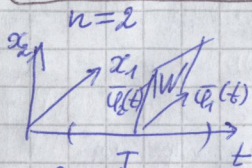 n = 2
x₂
x₁
φ̄₀(t) W φ̄₁(t)
I t